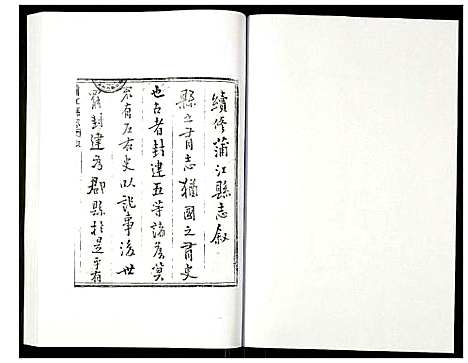 續修蒲江縣志敘
縣之有志猶國之有史
也古者封建五等諸侯莫
不有左右史以記事後世
罷封建為郡縣於是乎有